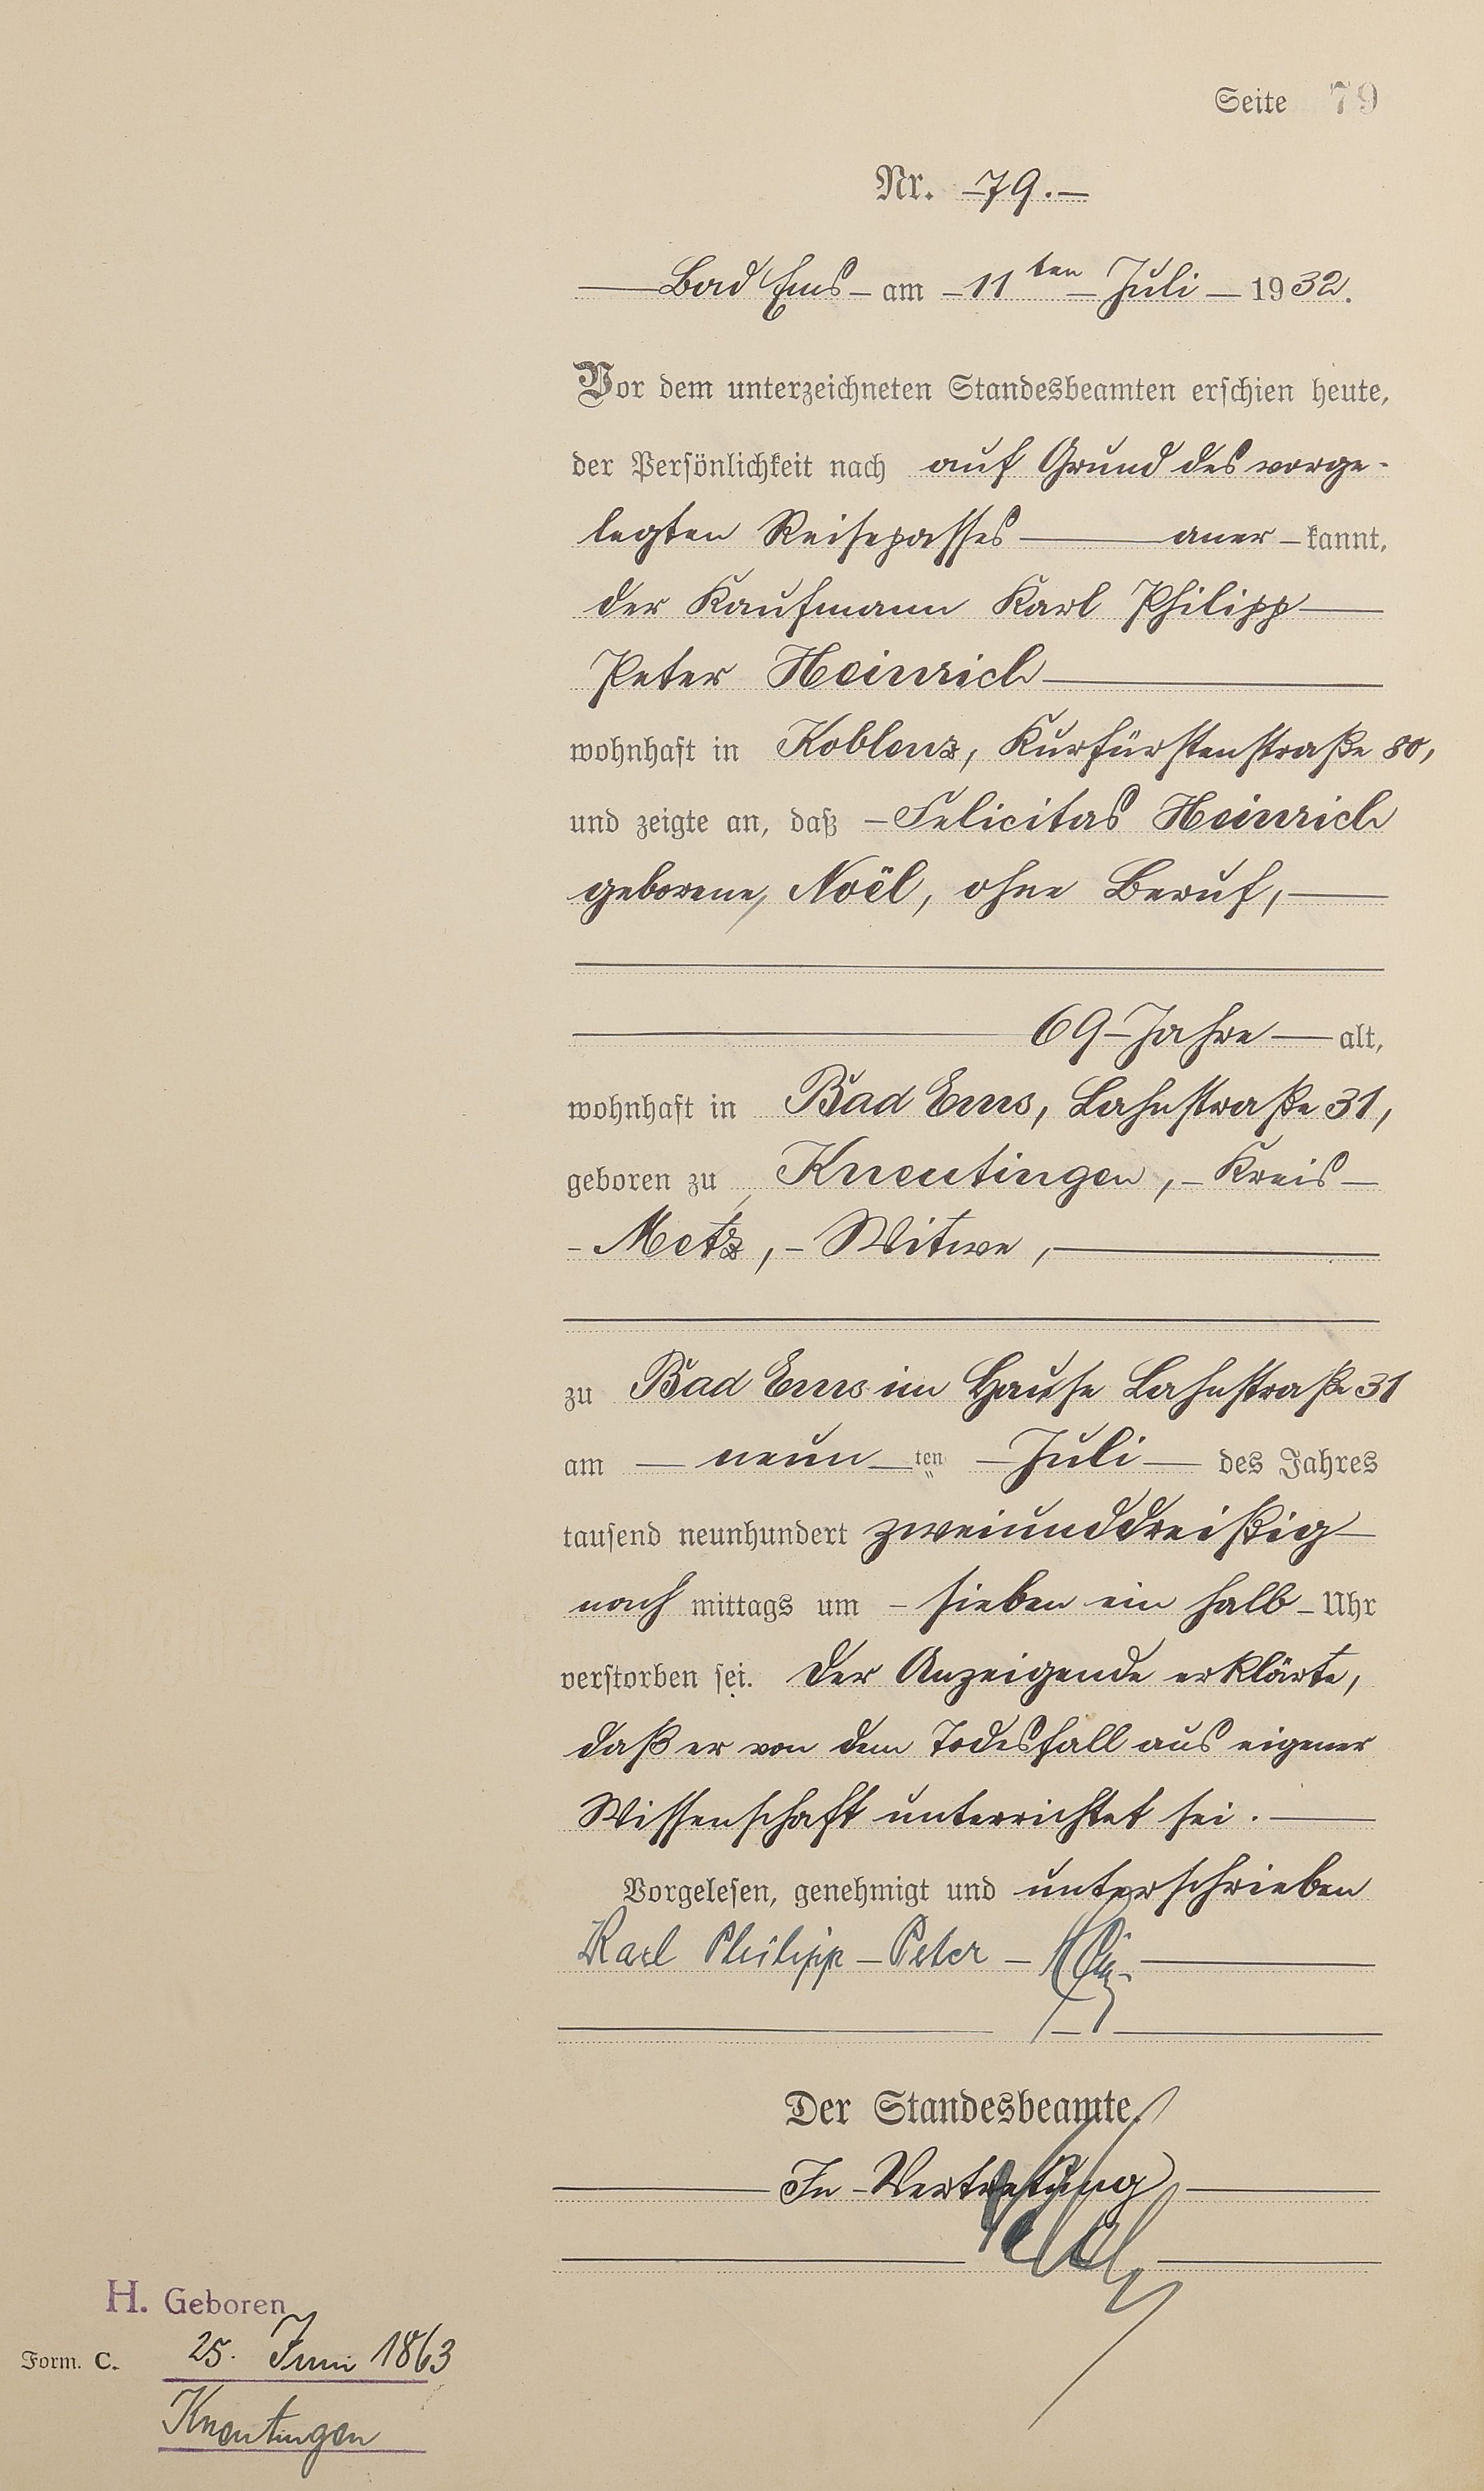 Seite 79
Nr. 79.
Bad Ems am 11ten Juli 1932.
Vor dem unterzeichneten Standesbeamten erschien heute,
der Persönlichkeit nach auf Grund des vorge-
legten Reisepasses aner kannt,
der Kaufmann Karl Philipp
Peter Heinrich
wohnhaft in Koblenz, Kurfürstenstraße 80,
und zeigte an, daß Felicitas Heinrich
geborene Noël, ohne Beruf,
69 Jahre alt,
wohnhaft in Bad Ems, Lahnstraße 31,
geboren zu Kneutingen, Kreis
Metz, Witwe,
zu Bad Ems im Hause Lahnstraße 31
am neun ten Juli des Jahres
tausend neunhundert zweiunddreißig
nach mittags um sieben ein halb Uhr
verstorben sei. Der Anzeigende erklärte,
daß er von dem Todesfall aus eigener
Wissenschaft unterrichtet sei.
Vorgelesen, genehmigt und unterschrieben
Karl Philipp Peter
Der Standesbeamte.
In Vertretung
H. Geboren
25. Juni 1863
Form. C.
Kneutingen